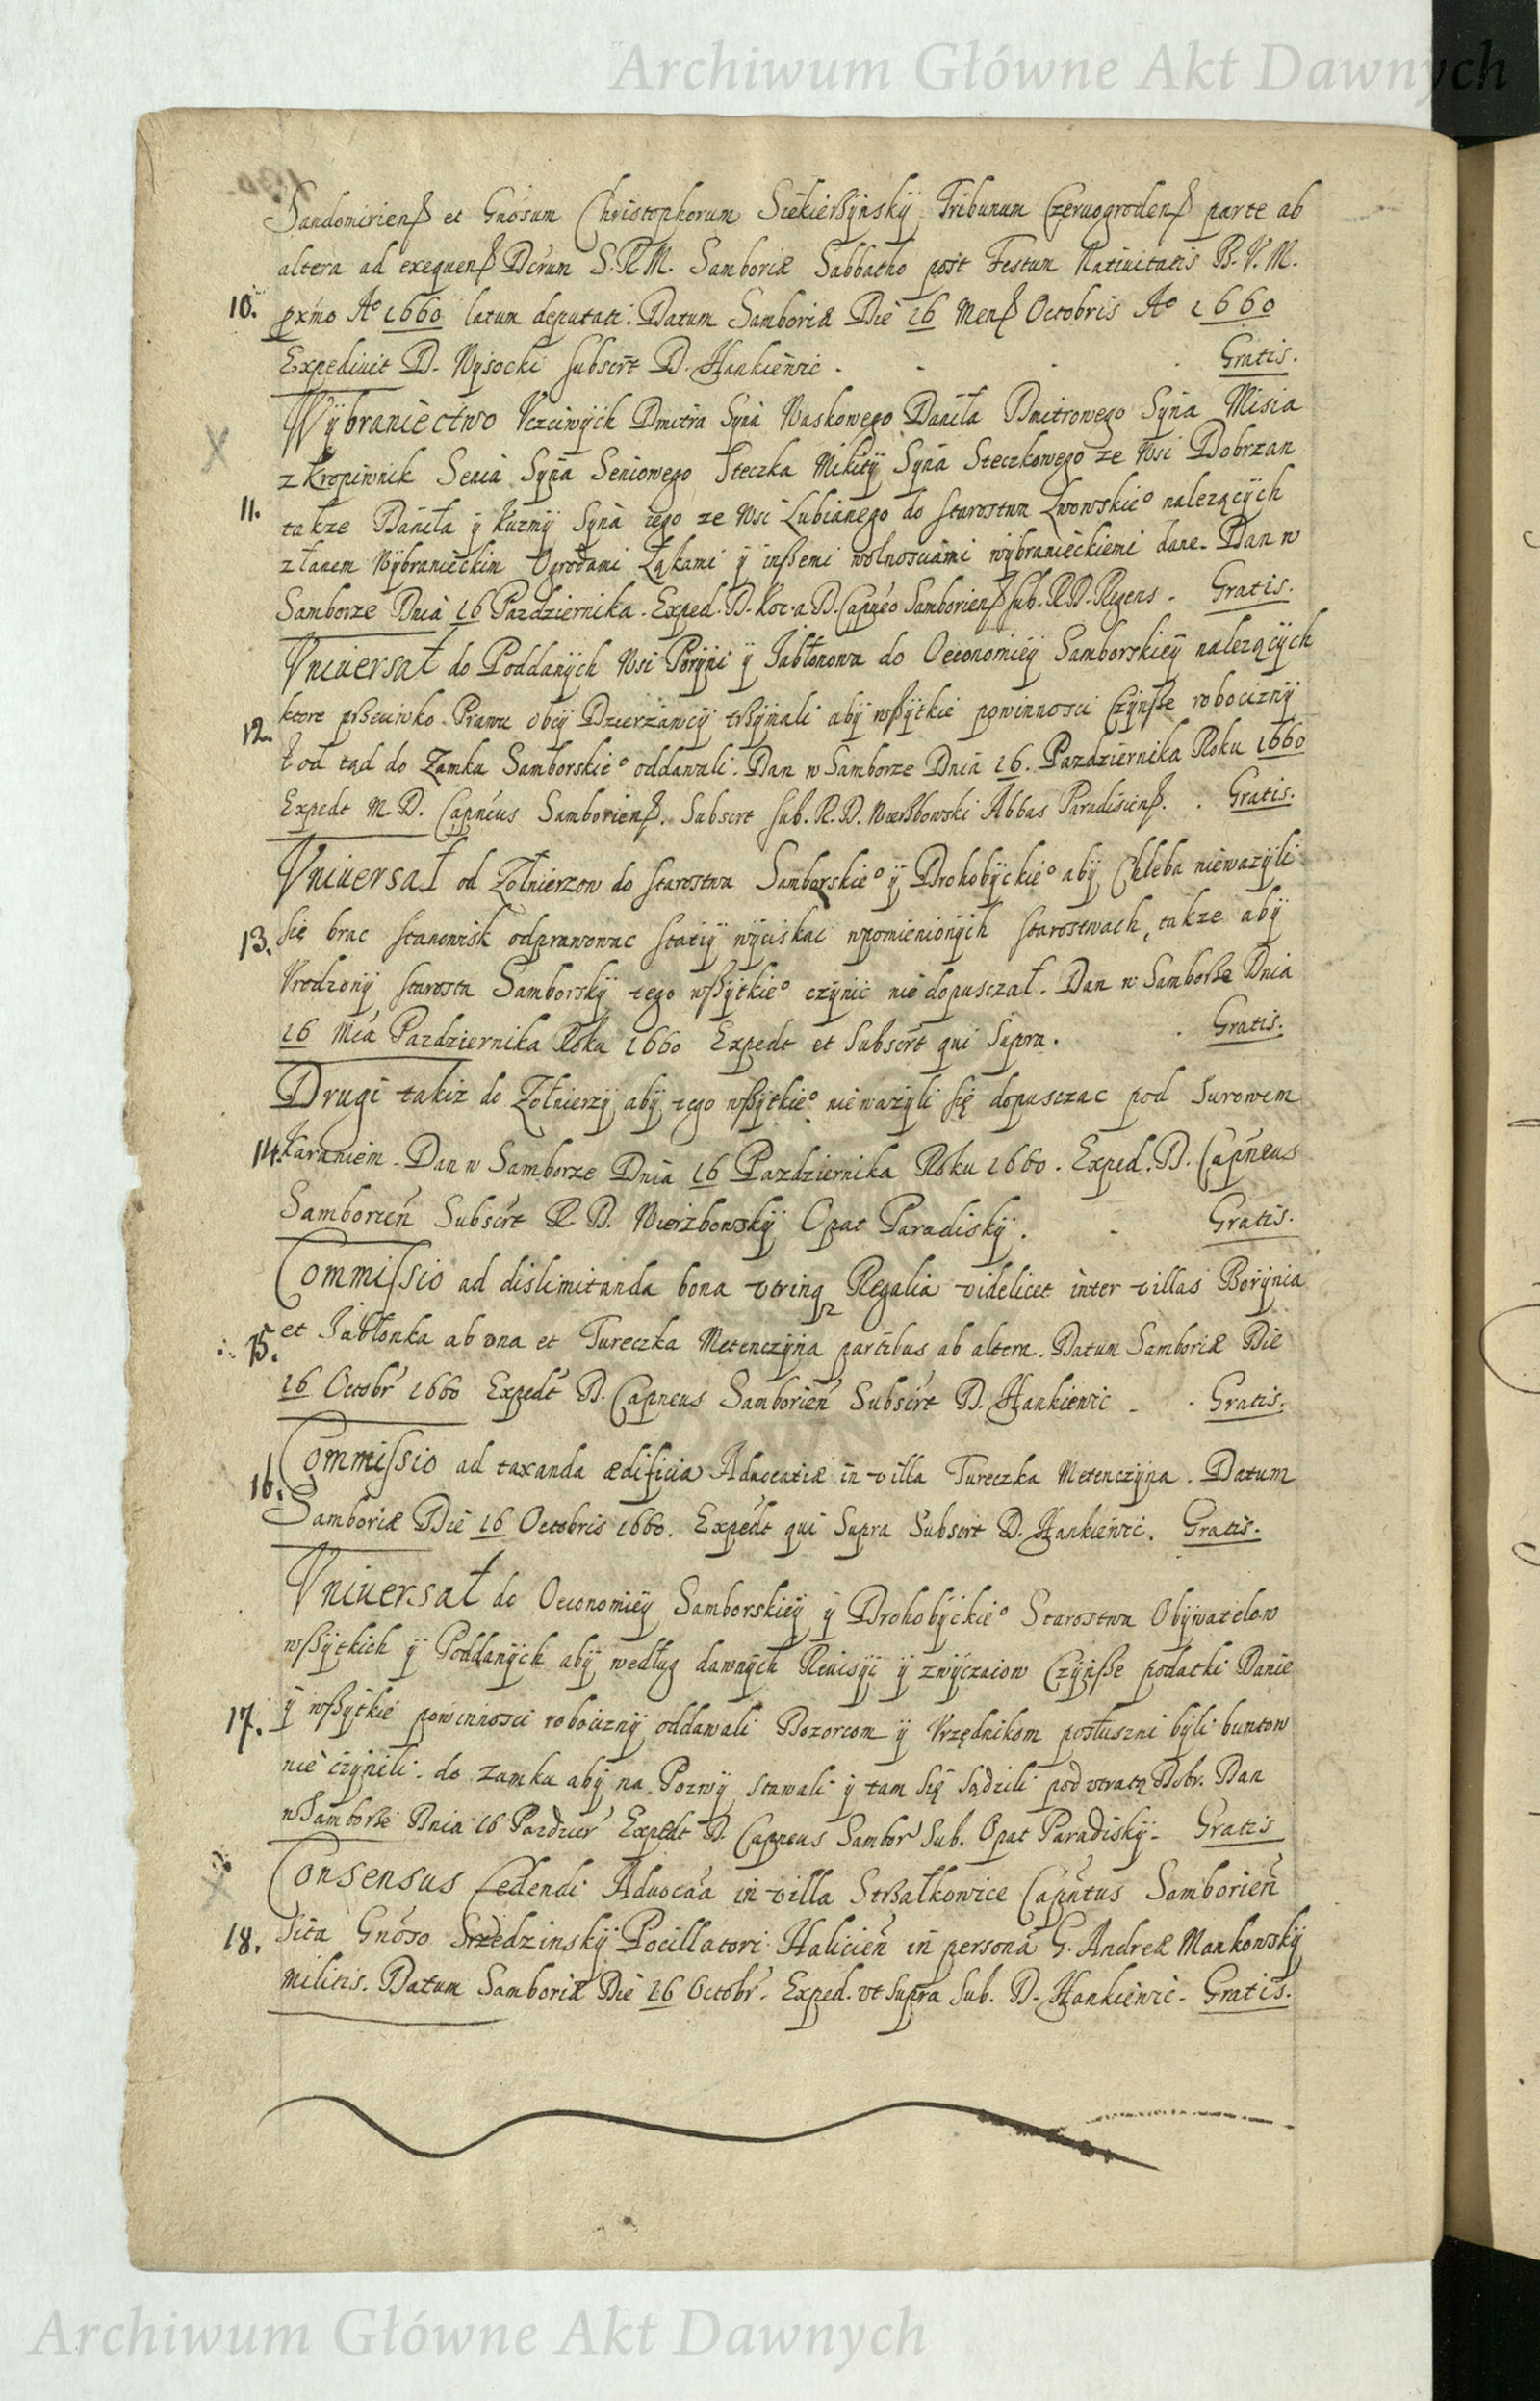 Archiwum Główne Akt Dawnych
Sandomirienß et Gnosum Christophorum Siekierßynsky Tribunum Czeruogrodenß parte ab
altera ad exequenß Dcrum S.R.M. Samboriæ Sabbatho post Festum Natiuitatis B.V.M.
10. pxmo Aº 1660 latum deputati. Datum Samboriæ Die 16 Menß Octobris Aº 1660
Expediuit D. Wysocki subscrt D. Hankiewic. Gratis.
Wÿbraniectwo Vczciwÿch Dmitra Sÿna Waskowego Daniła Dmitrowego Sÿna Misia
z Kropiwnik Senia Sÿna Seniowego Steczka Mikitÿ Sÿna Steczkowego ze Wsi Dobrzan
11. takze Daniła ÿ Kuzmÿ Sÿna iego ze Wsi Lubianego do Starostwa Lwowskieº nalezącÿch
z łanem Wÿbranieckim Ogrodami Łąkami ÿ inßemi wolnosciami wÿbranieckiemi dane. Dan w
Samborze Dnia 16 Pazdziernika. Exped. D. Koc. a D. Capneo Samborienß sub. R.D. Regens. Gratis.
Vniuersał do Poddanÿch Wsi Porÿni ÿ Jabłonowa do Oeconomieÿ Samborskieÿ nalezącÿch
12. ktore prßeciwko Prawu obcÿ Dzierzawcÿ trßÿmali abÿ wßÿtkie powinnosci Czÿnße robociznÿ
ł od tąd do Zamku Samborskieº oddawali. Dan w Samborze Dnia 16. Pazdziernika Roku 1660
Expedt M.D. Capneus Samborienß. Subscrt sub. R.D. Wierßbowski Abbas Paradisienß. Gratis.
Vniuersał od Zołnierzow do Starostwa Samborskieº ÿ Drohobÿckieº abÿ Chleba niewazÿli
13. się brac stanowisk odprawowac statiÿ wÿciskac wpomienionÿch starostwach, takze abÿ
Vrodzonÿ starosta Samborskÿ tego wßÿtkieº czÿnic nie dopusczał. Dan w Samborße Dnia
16 Mca Pazdziernika Roku 1660 Expedt et Subscrt qui Supra. Gratis.
Drugi takiz do Zołnierzÿ abÿ tego wßÿtkieº niewazÿli się dopusczac pod surowem
14. Karaniem. Dan w Samborze Dnia 16 Pazdziernika Roku 1660. Exped. D. Capneus
Samborien Subscrt R.D. Wierzbowskÿ Opat Paradiskÿ. Gratis.
Commissio ad dislimitanda bona vtrinq Regalia videlicet inter villas Borÿnia
15. et Jabłonka ab vna et Tureczka Metenczÿna partibus ab altera. Datum Samboriæ Die
16 Octobr 1660 Expedt D. Capneus Samborien Subscrt D. Hankiewic. Gratis.
Commissio ad taxanda ædificia Aduocatiæ in villa Tureczka Metenczyna. Datum
16. Samboriæ Die 16 Octobris 1660. Expedt qui Supra Subscrt D. Hankiewic. Gratis.
Vniuersał do Oeconomieÿ Samborskieÿ ÿ Drohobÿckieº Starostwa Obÿwatelow
wßÿtkich ÿ Poddanÿch abÿ według dawnÿch Reuisÿi ÿ zwÿczaiow Czÿnße podatki Danie
17. ÿ wßÿtkie powinnosci robociznÿ oddawali Dozorcom ÿ Vrzędnikom posłuszni bÿli buntow
nie czÿnili. do zamku abÿ na Pozwÿ stawali ÿ tam się sądzili pod vtratą Dobr. Dan
w Samborße Dnia 16 Pazdzier Expedt D. Capneus Sambor Sub. Opat Paradiskÿ. Gratis
Consensus Cedendi Aduocaa in villa Strßałkowice Capntus Samborien
18. Sita Gnoso Srzedzinskÿ Pocillatori Halicien in persona G. Andreæ Mankowskÿ
militis. Datum Samboriæ Die 16 Octobr. Exped. vt Supra Sub. D. Hankiewic. Gratis.
Archiwum Główne Akt Dawnych